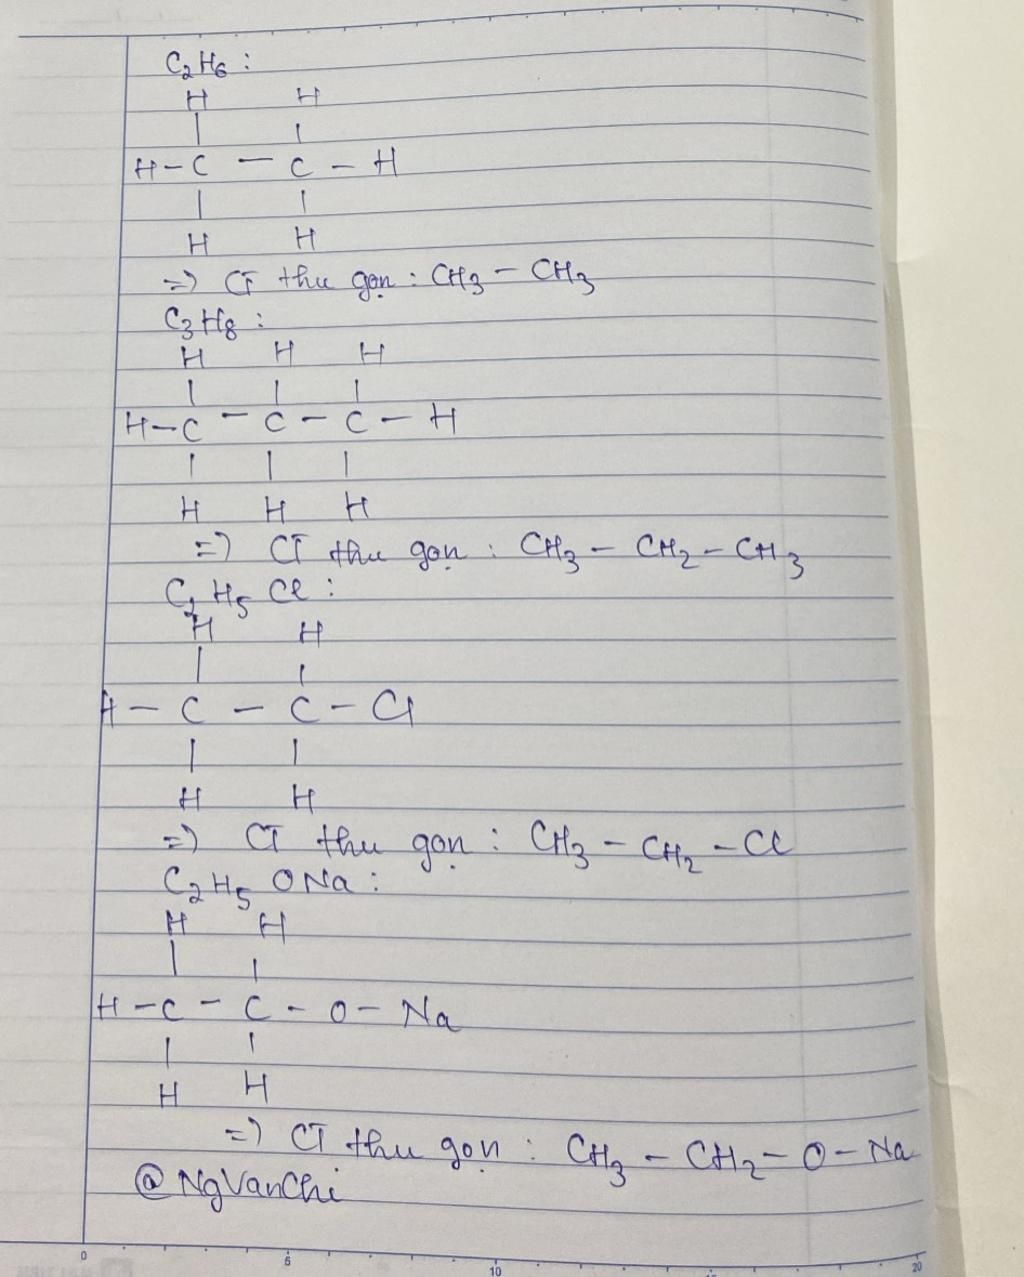 C₂H₆ :
H H
| |
H - C - C - H
| |
H H
=> CT thu gọn : CH₃ - CH₃
C₃H₈ :
H H H
| | |
H - C - C - C - H
| | |
H H H
=> CT thu gọn : CH₃ - CH₂ - CH₃
C₂H₅Cl :
H H
| |
H - C - C - Cl
| |
H H
=> CT thu gọn : CH₃ - CH₂ - Cl
C₂H₅ONa :
H H
| |
H - C - C - O - Na
| |
H H
=> CT thu gọn : CH₃ - CH₂ - O - Na
@NgVanChi
0 5 10 20